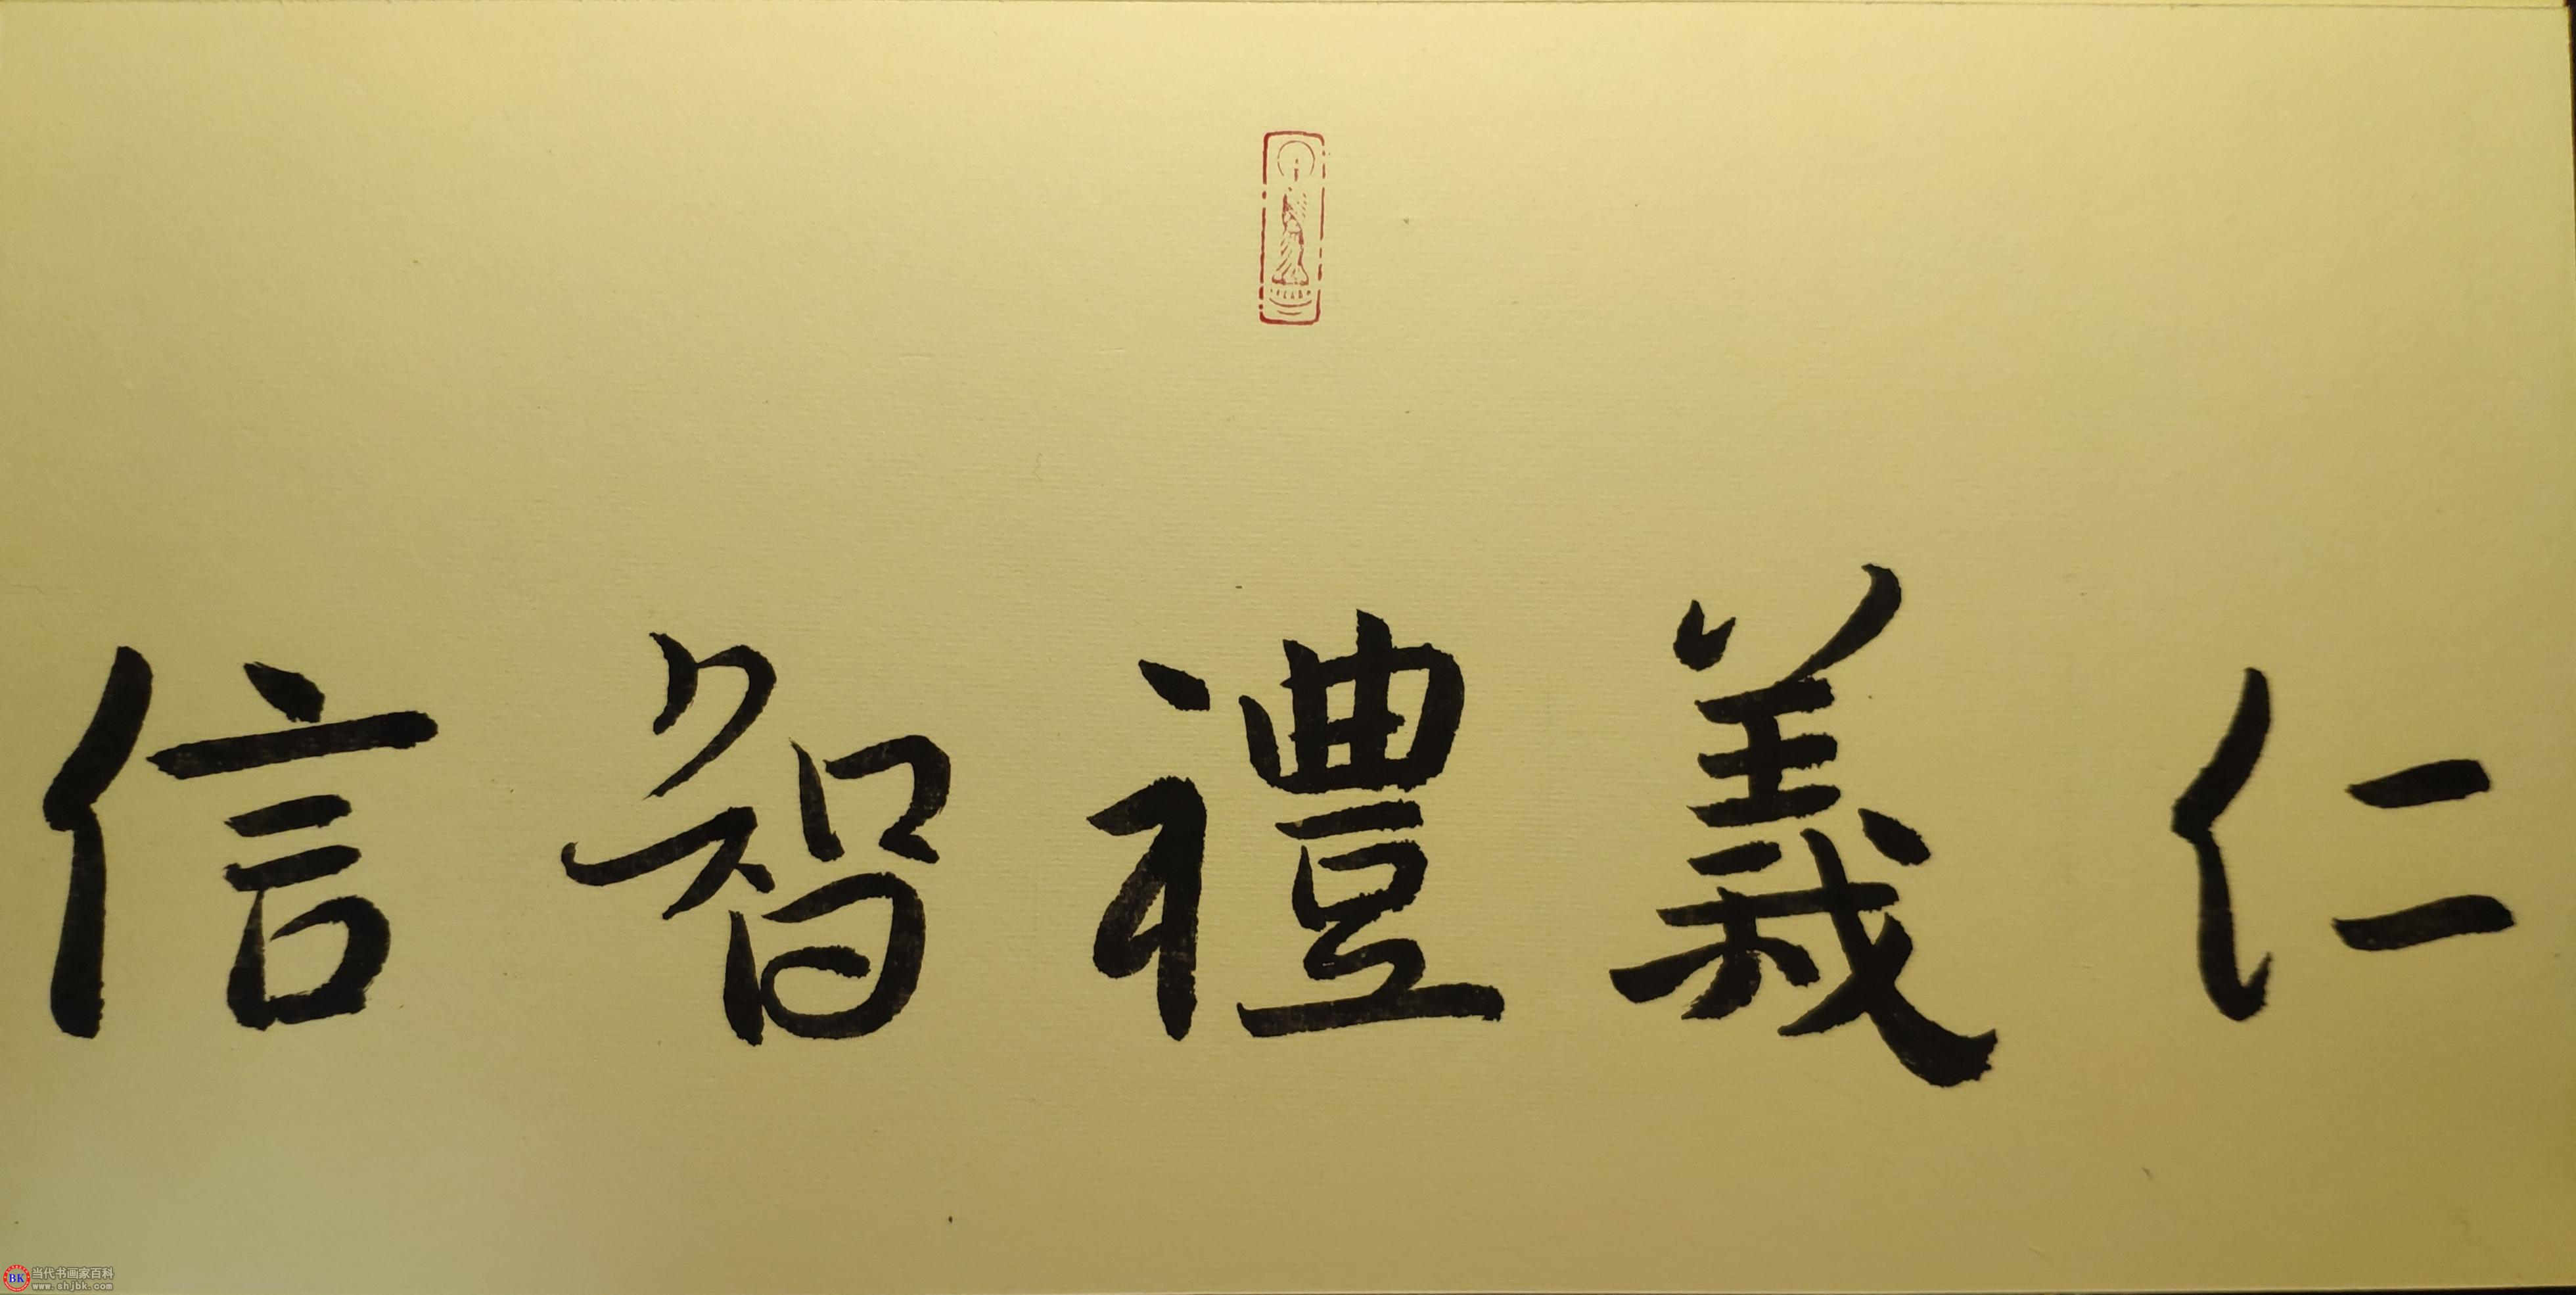 仁義禮智信
BK 当代书画家百科
www.shjbk.com